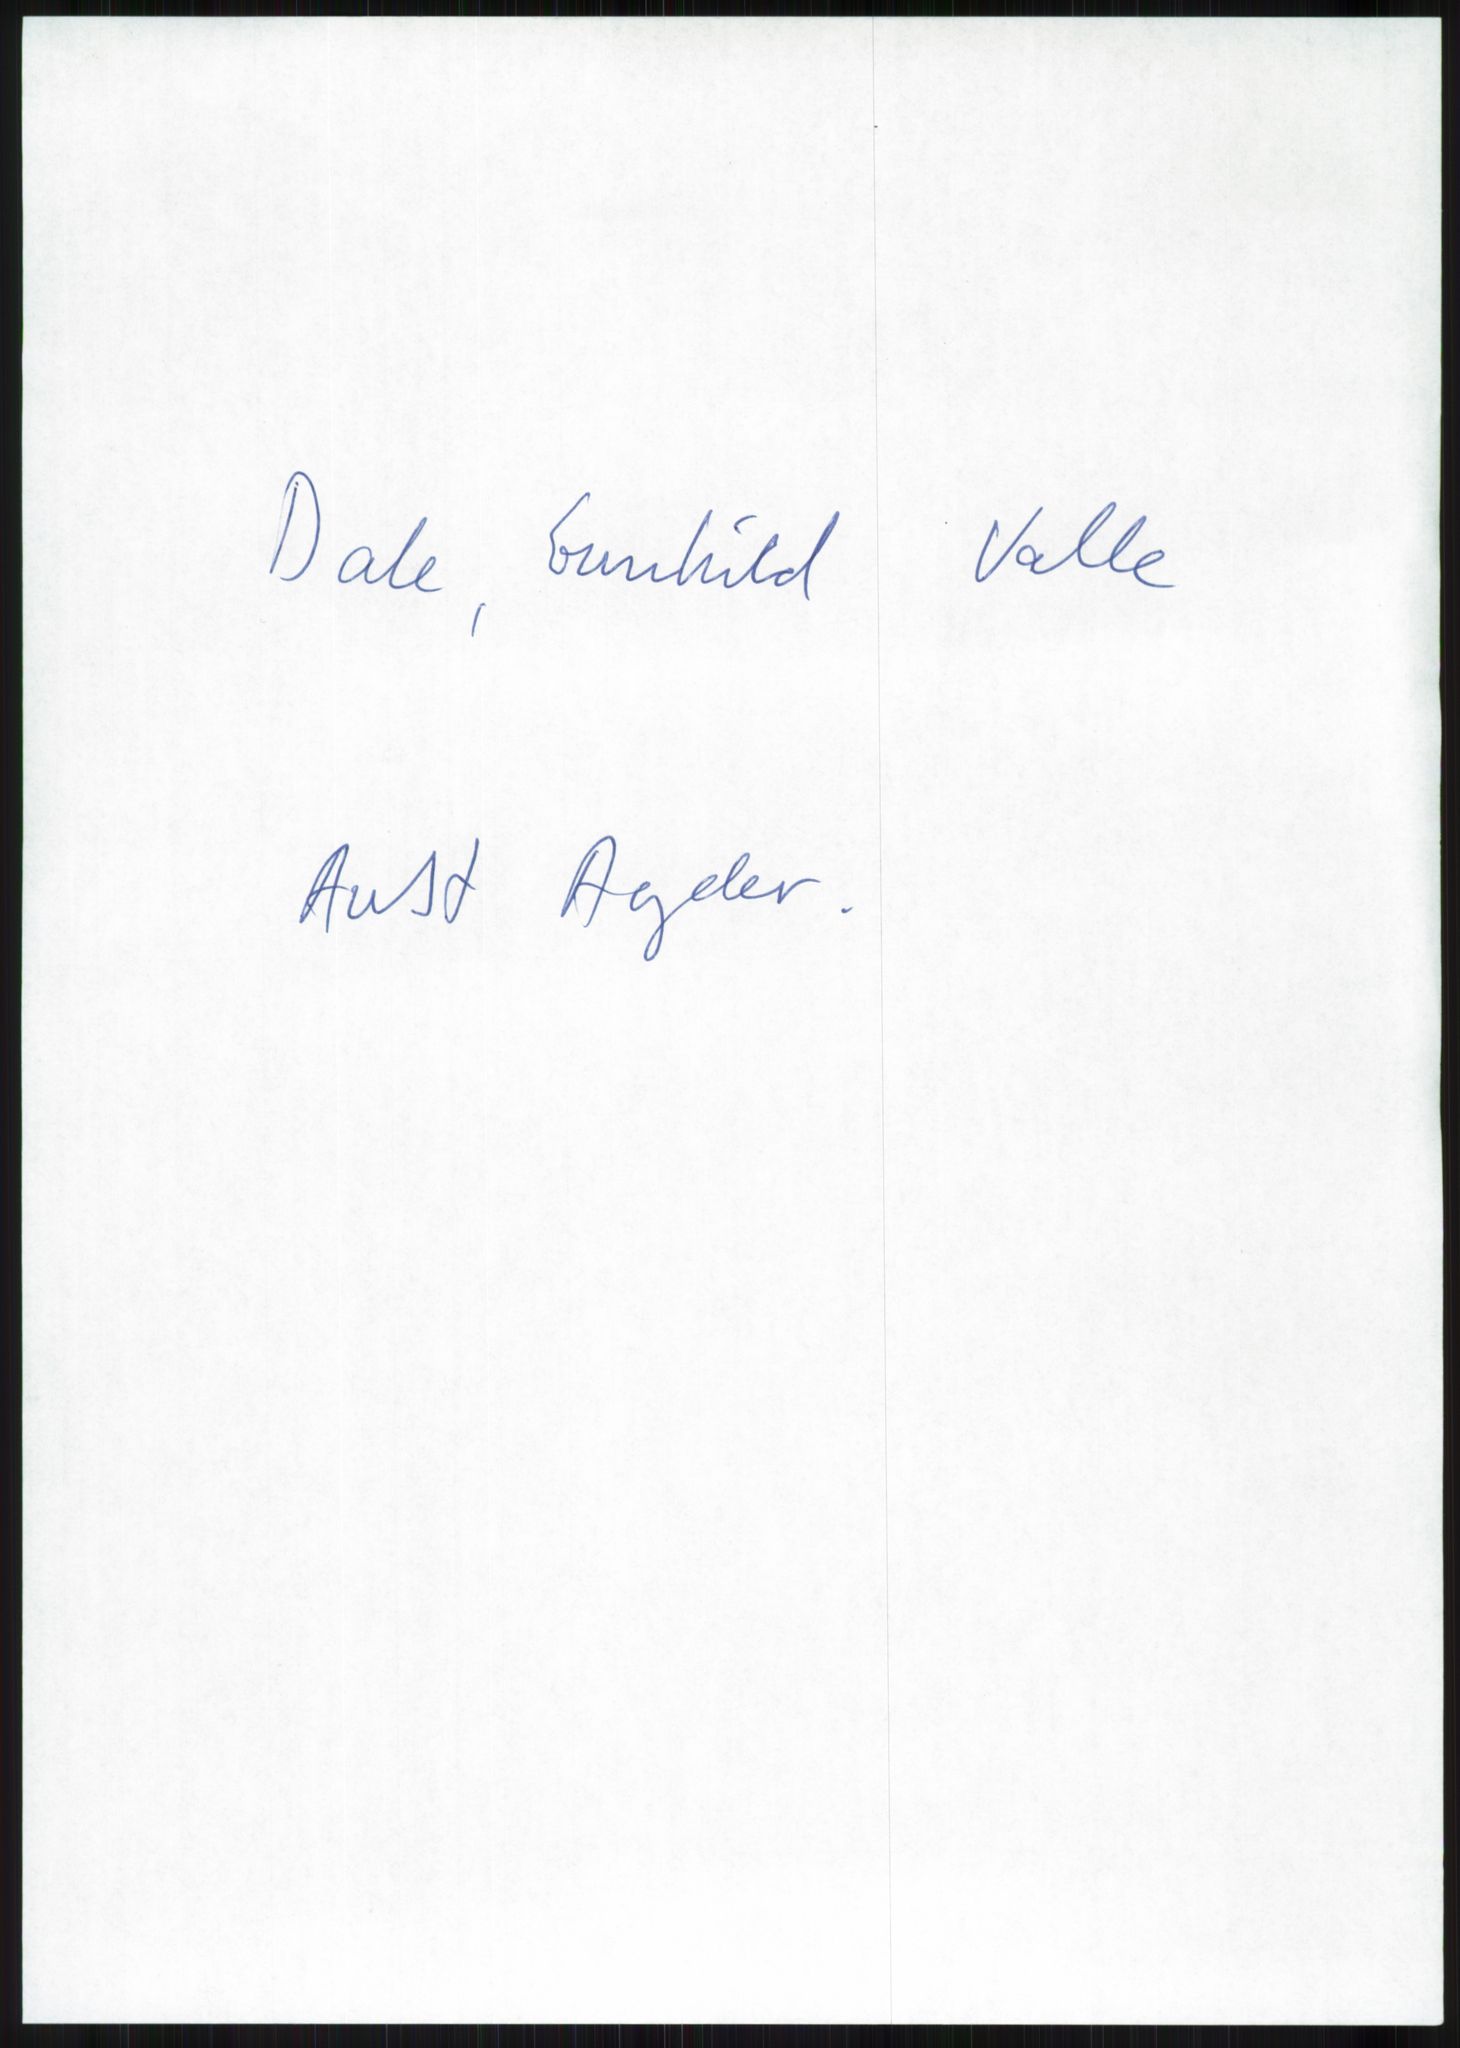 Dale, Gunhild Valle
Aust Agder.